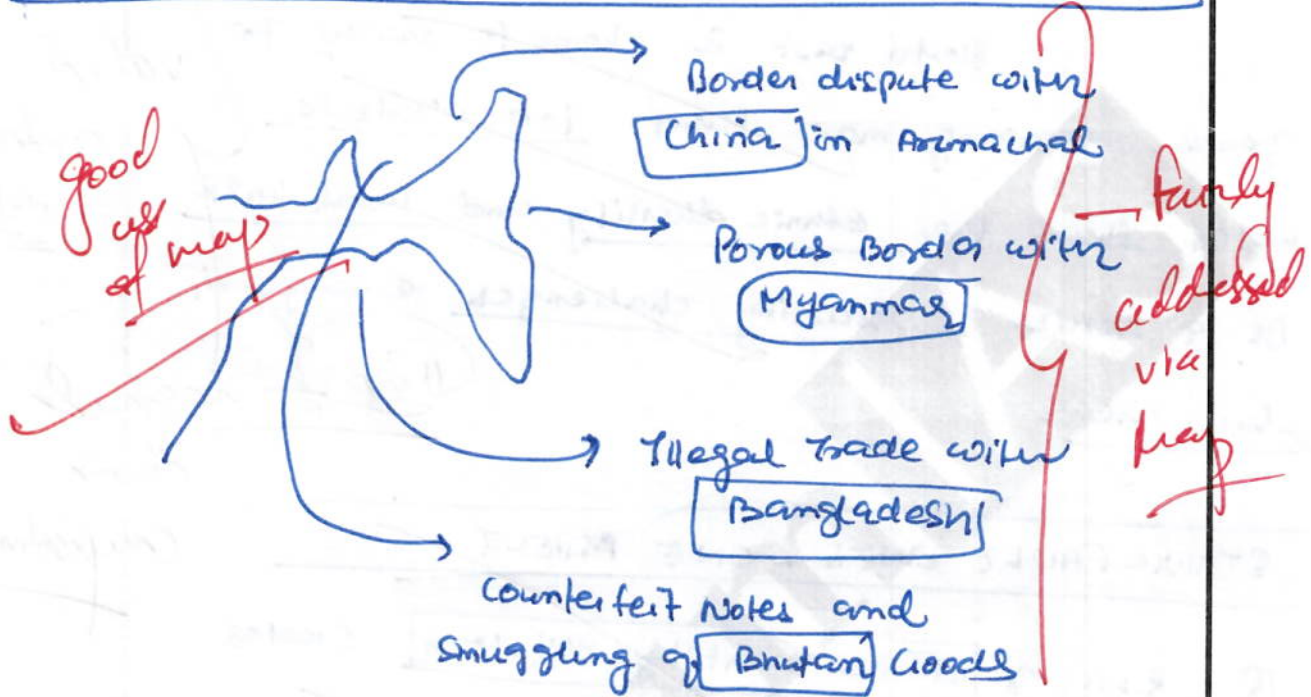 Border dispute with
China in Arunachal
Porous Border with
Myanmar
Illegal Trade with
Bangladesh
Counterfeit Notes and
Smuggling of Bhutan Goods
good
use
of map
Fairly
addressed
via
map